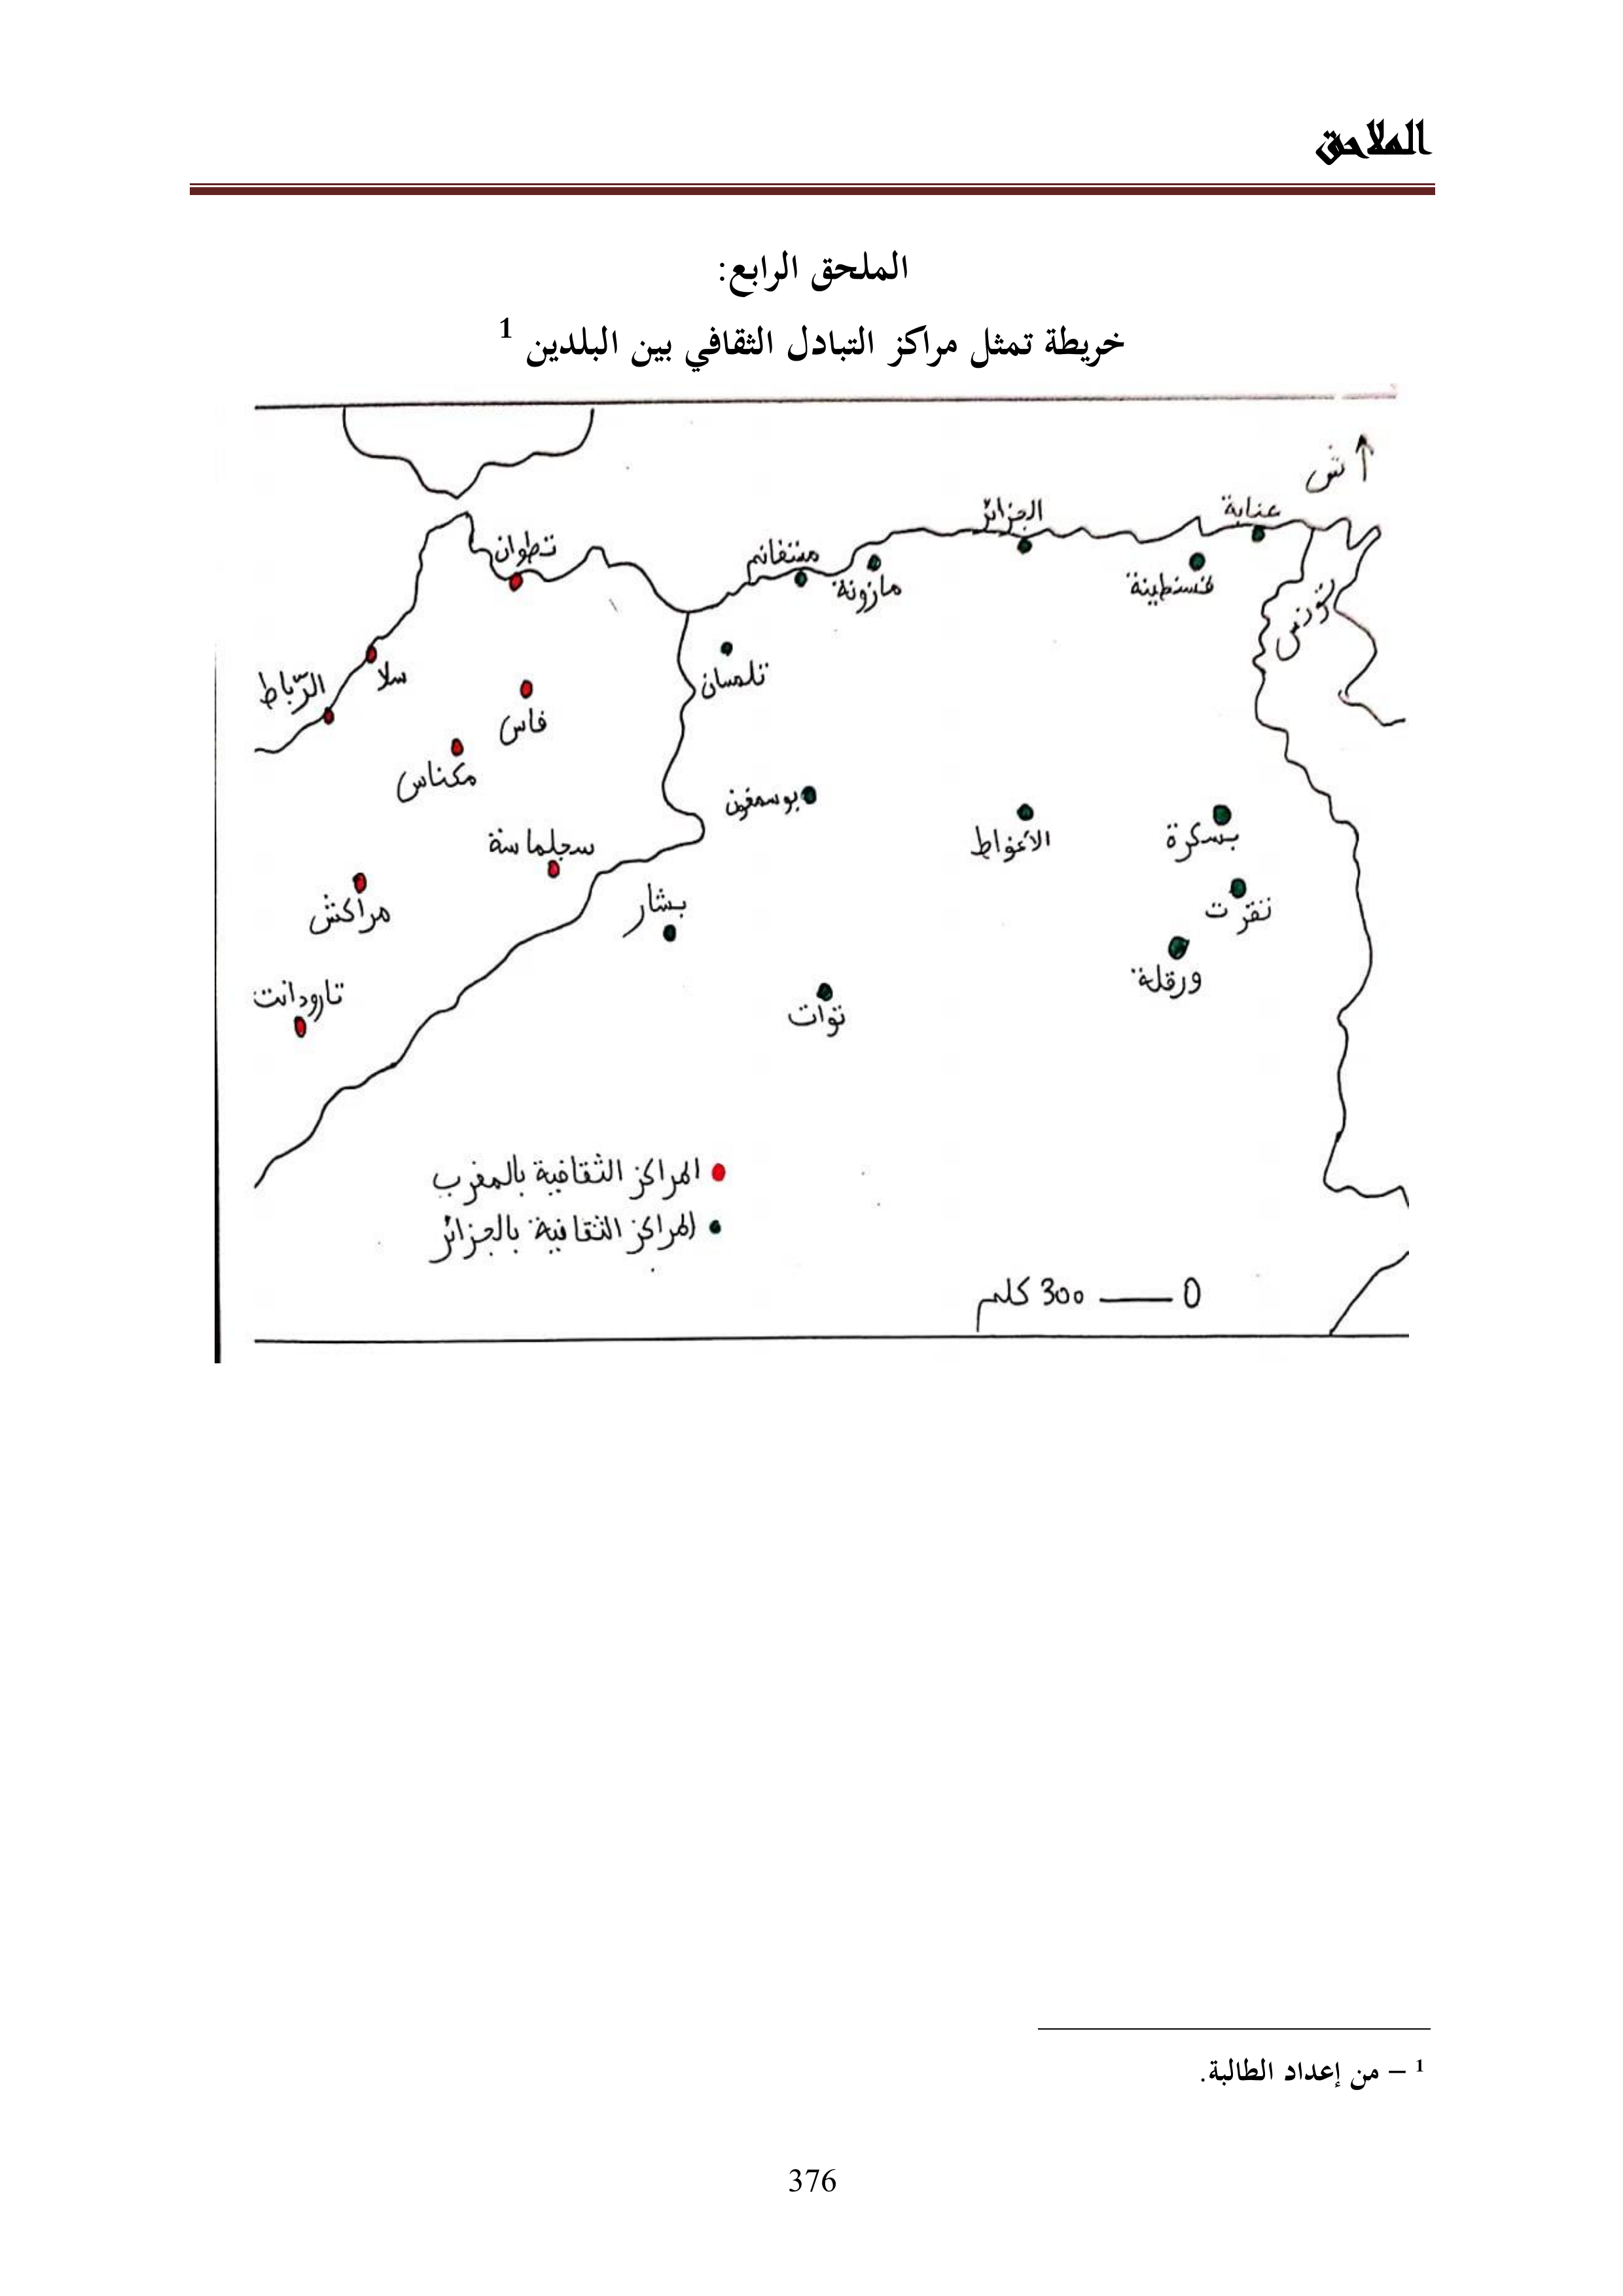 الملاحق
الملحق الرابع:
خريطة تمثل مراكز التبادل الثقافي بين البلدين 1
ش
عنابة
الجزائر
تطوان
مستغانم
مازونة
قسنطينة
تونس
سلا
الرّباط
تلمسان
فاس
مكناس
بوسمغون
الأغواط
بسكرة
سجلماسة
مراكش
بشار
تقرت
ورقلة
تارودانت
توات
المراكز الثقافية بالمغرب
المراكز الثقافية بالجزائر
0 300 كلم
1 – من إعداد الطالبة.
376